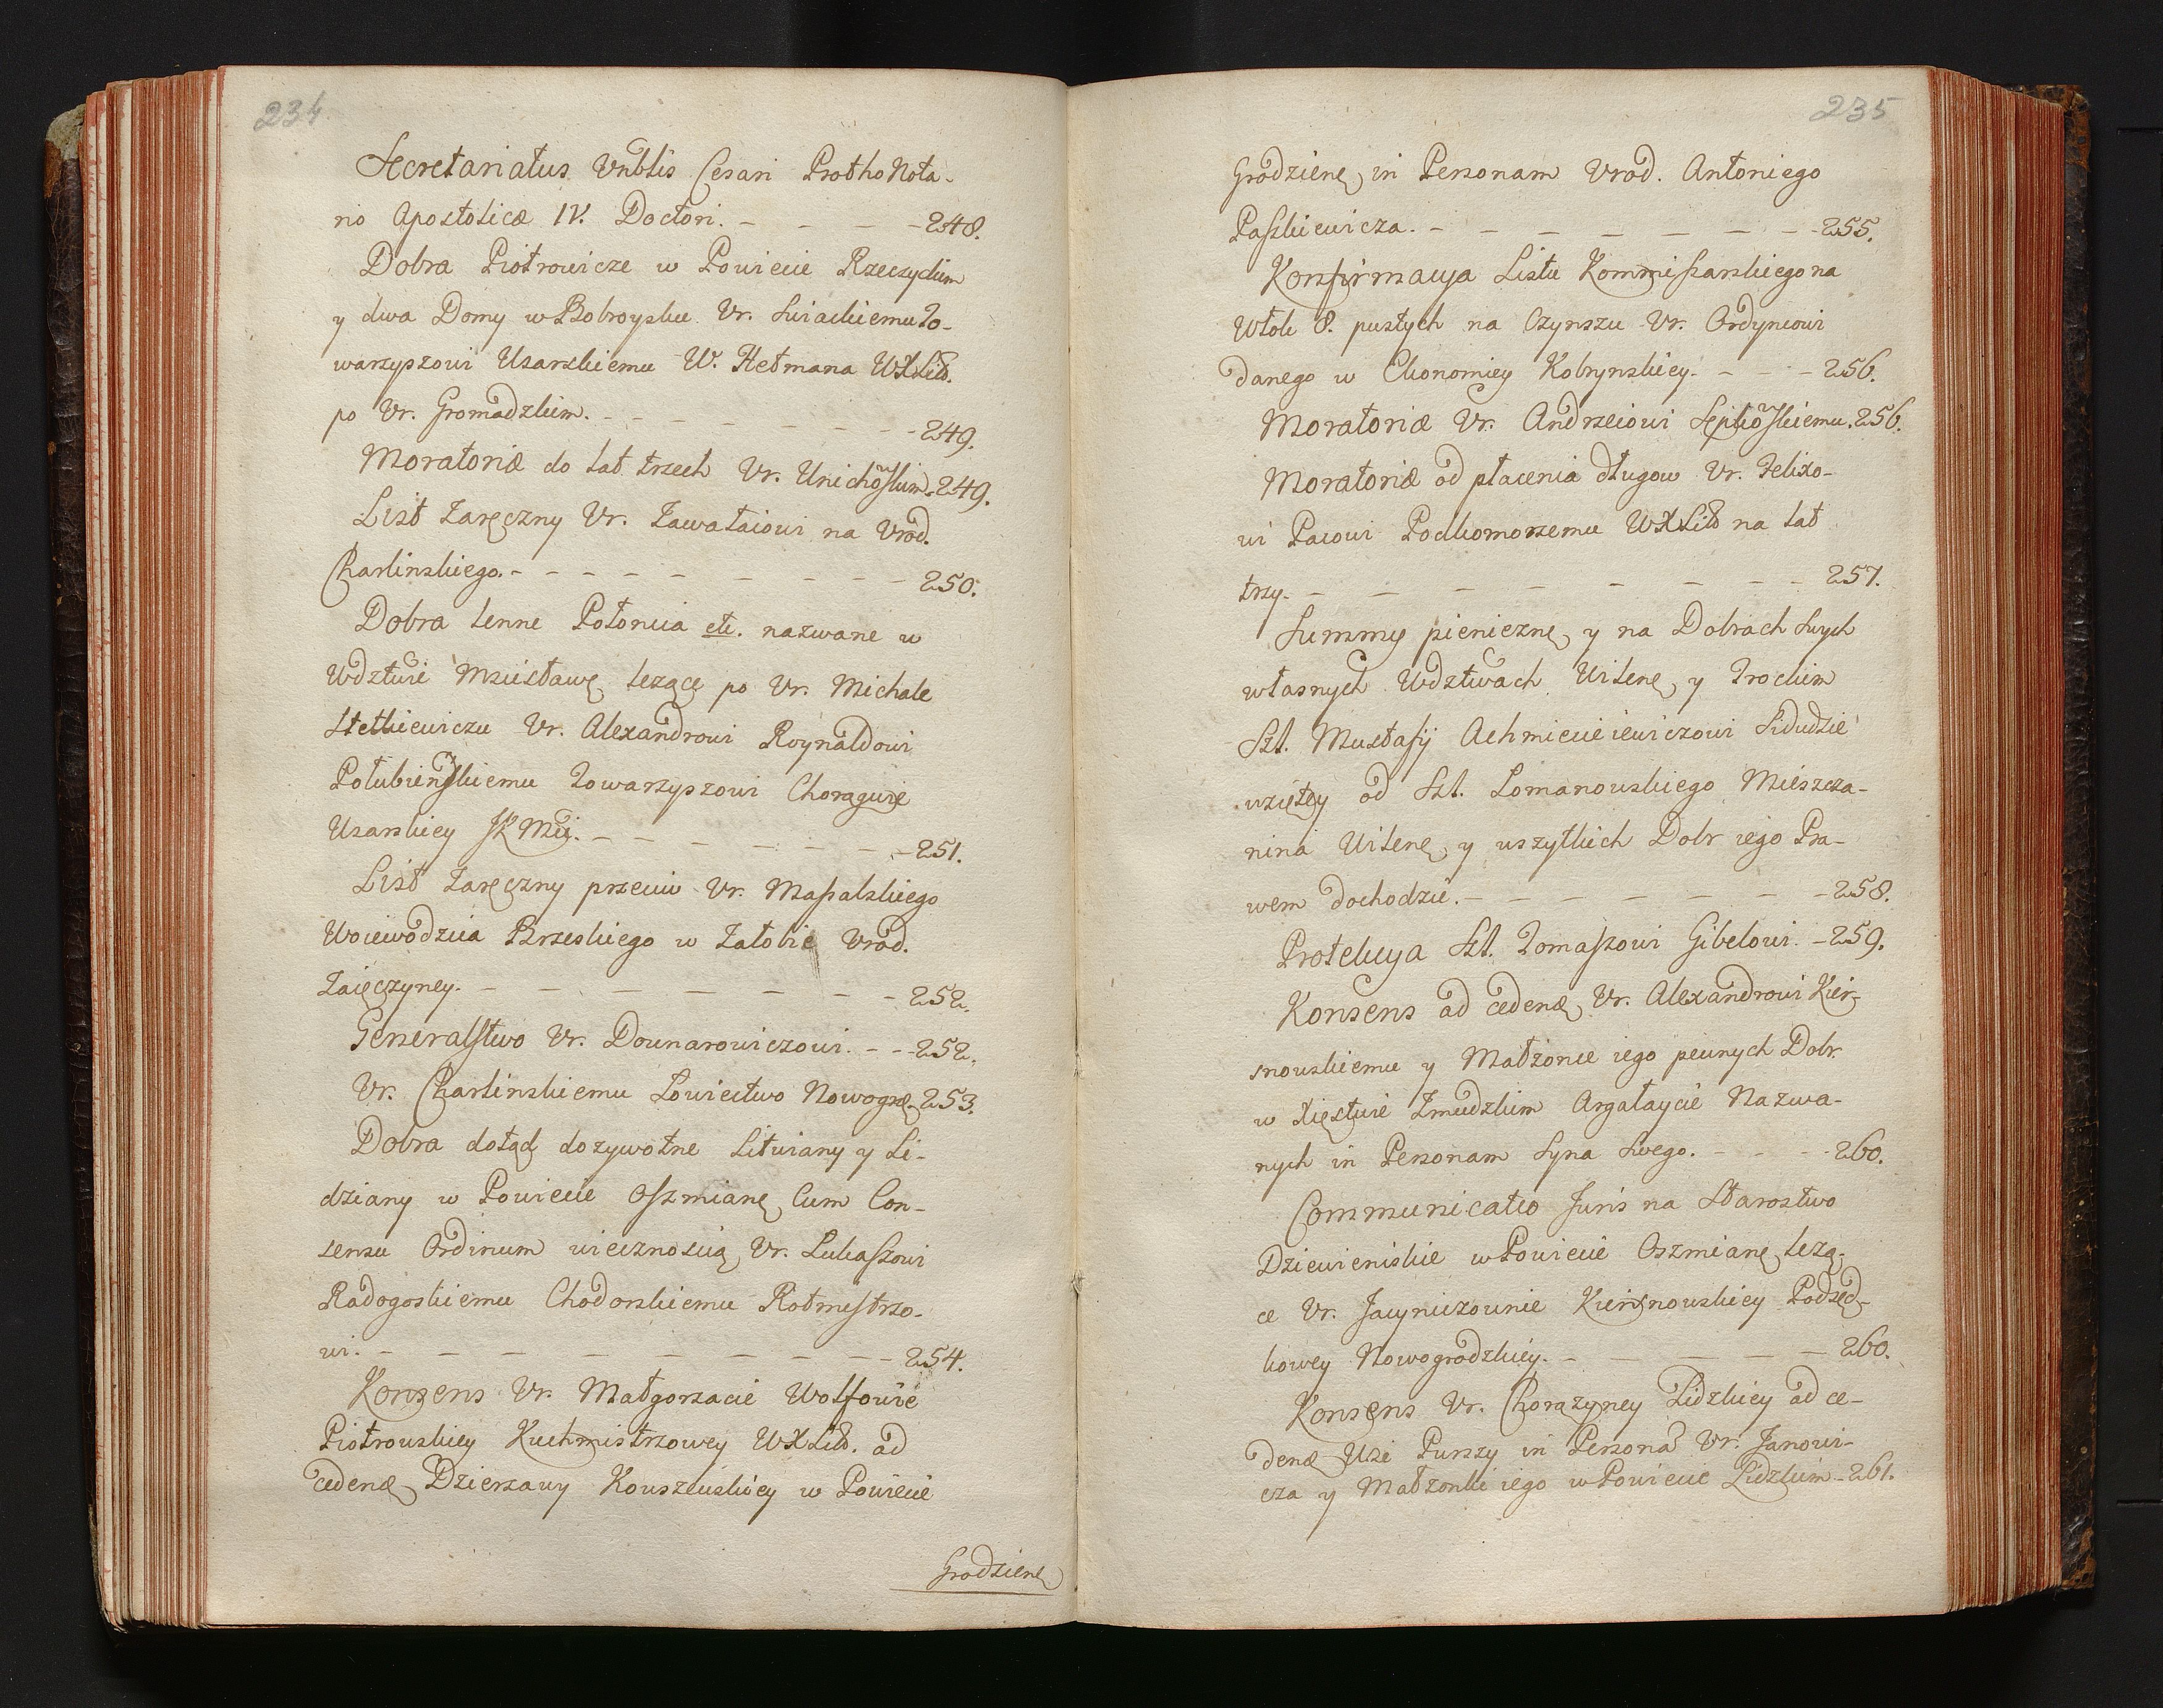 234
Secretariatus Vnblis Cesari ProthoNota-
rio Apostolicæ IV. Doctori. - - - - 248.
Dobra Piotrowicze w Powiecie Rzeczyckim
y dwa Domy w Bobroysku Vr. Swiackiemu To-
warzyszowi Usarskiemu W. Hetmana WXLitt.
po Vr. Gromadzkim. - - - - - - - 249.
Moratoriæ do lat trzech Vr. Unichowskim. 249.
List Zaręczny Vr. Zawałaiowi na Vrod.
Charlinskiego. - - - - - - - - - 250.
Dobra lenne Połoncia etc. nazwane w
Wdztwie Mscisławę leżące po Vr. Michale
Stetkiewiczu Vr. Alexandrowi Roynałdowi
Połubienskiemu Towarzyszowi Chorągwie
Usarskiey JKMci. - - - - - - - 251.
List Zaręczny przeciw Vr. Massalskiego
Woiewodzica Brzeskiego w Załobie Vrod.
Zaięczyney. - - - - - - - 252.
Generalstwo Vr. Downarowiczowi. - - 252.
Vr. Charlinskiemu Łowiectwo Nowogrę. 253.
Dobra dotąd dozywotne Litwiany y Li-
dziany w Powiecie Oszmianę Cum Con-
sensu Ordinum wiecznoscią Vr. Lukaszowi
Radogoskiemu Chodorskiemu Rotmistrzo-
wi. - - - - - - - - 254.
Konsens Vr. Małgorzacie Wolfowie
Piotrowskiey Kuchmistrzowey WXLitt. ad
cedenæ Dzierzawy Kowszewskiey w Powiecie
Grodzienę
235
Grodzienę in Personam Vrod. Antoniego
Paszkiewicza. - - - - - - - - 255.
Konfirmacya Listu Kommissarskiego na
Włok 8. pustych na Czynszu Vr. Ordyncowi
danego w Ekonomiey Kobrynskiey. - - - 256.
Moratoriæ Vr. Andrzeiowi Sepkowskiemu. 256.
Moratoriæ od płacenia długow Vr. Felixo-
wi Pacowi Podkomorzemu WXLitt na lat
trzy. - - - - - - - - 257.
Summy pieniezne y na Dobrach swych
własnych Wdztwach Wilenę y Trockim
Szl. Mustafy Achmieciewiczowi Sidudzie
wziętey od Szl. Lomanowskiego Mieszcza-
nina Wilenę y wszytkich Dobr iego Pra-
wem dochodzic. - - - - - - - 258.
Protekcya Szl. Tomaszowi Gibelowi. - 259.
Konsens ad cedenæ Vr. Alexandrowi Kier-
snowskiemu y Małżonce iego pewnych Dobr.
w Xięstwie Zmudzkim Argałaycie Nazwa-
nych in Personam Syna Swego. - - - 260.
Communicatio Juris na Starostwo
Dziewieniskie w Powiecie Oszmianę leżą-
ce Vr. Jacyniczownie Kiersnowskiey Podsęd-
kowey Nowogrodzkiey. - - - - - 260.
Konsens Vr. Chorązyney Lidzkiey ad ce-
denæ Wsi Purszy in Persona Vr. Janowi-
cza y Małzonki iego w Powiecie Lidzkim. 261.